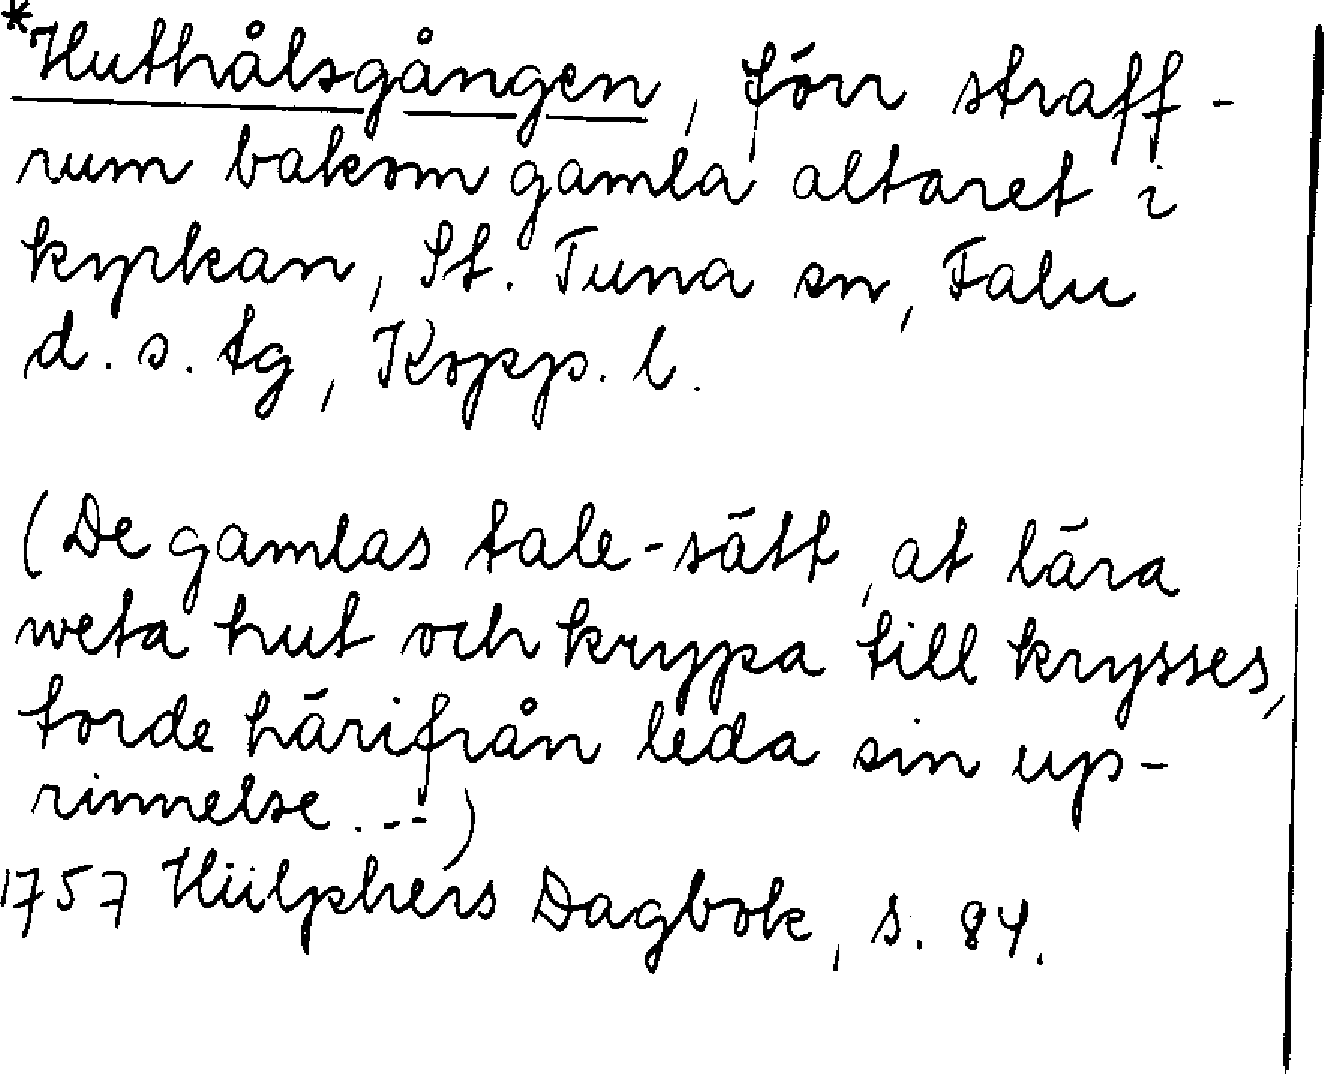 *Huthålsgången, förr straff-
rum bakom gamla altaret i
kyrkan, St. Tuna sn, Falu
d. s. tg, Kopp. l.
(De gamlas tale-sätt, at lära
weta hut och krypa till krysses,
torde härifrån leda sin up-
rinnelse.--)
1757 Hülphers Dagbok, s. 84.